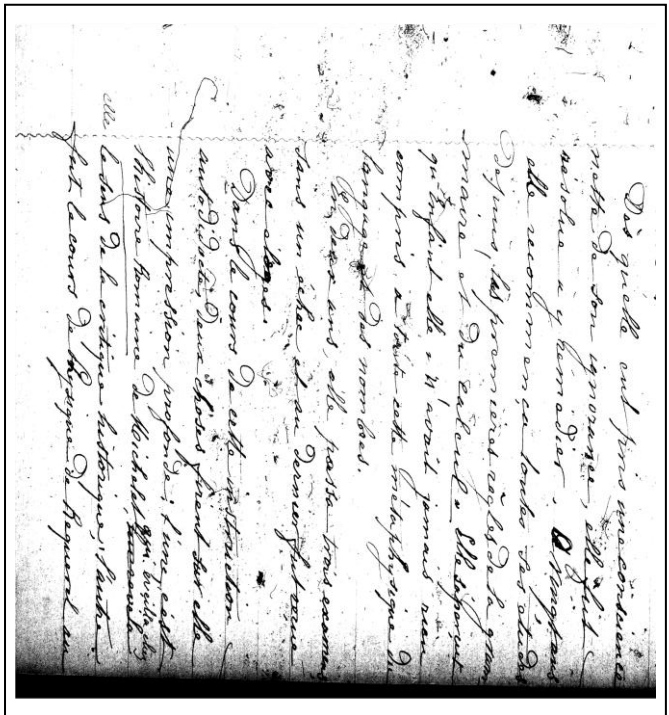 Dès qu'elle eut pris une conscience
nette de son ignorance, elle fut
résolue à y remédier. à vingt ans
elle recommença toutes ses études
depuis les premières règles de la gram
maire et du calcul. Elle s'aperçut
qu'enfant elle n'avait jamais rien
compris à toute cette métaphysique du
langage et des nombres.
En deux ans, elle passa trois examens
sans un échec et au dernier fut reçue
avec éloges.
Dans le cours de cette instruction
autodidacte deux choses firent sur elle
une impression profonde: l'une c'est
l'histoire Romaine de Michelet qui éveilla chez
elle le sens de la critique historique; l'autre
fut le cours de physique de au